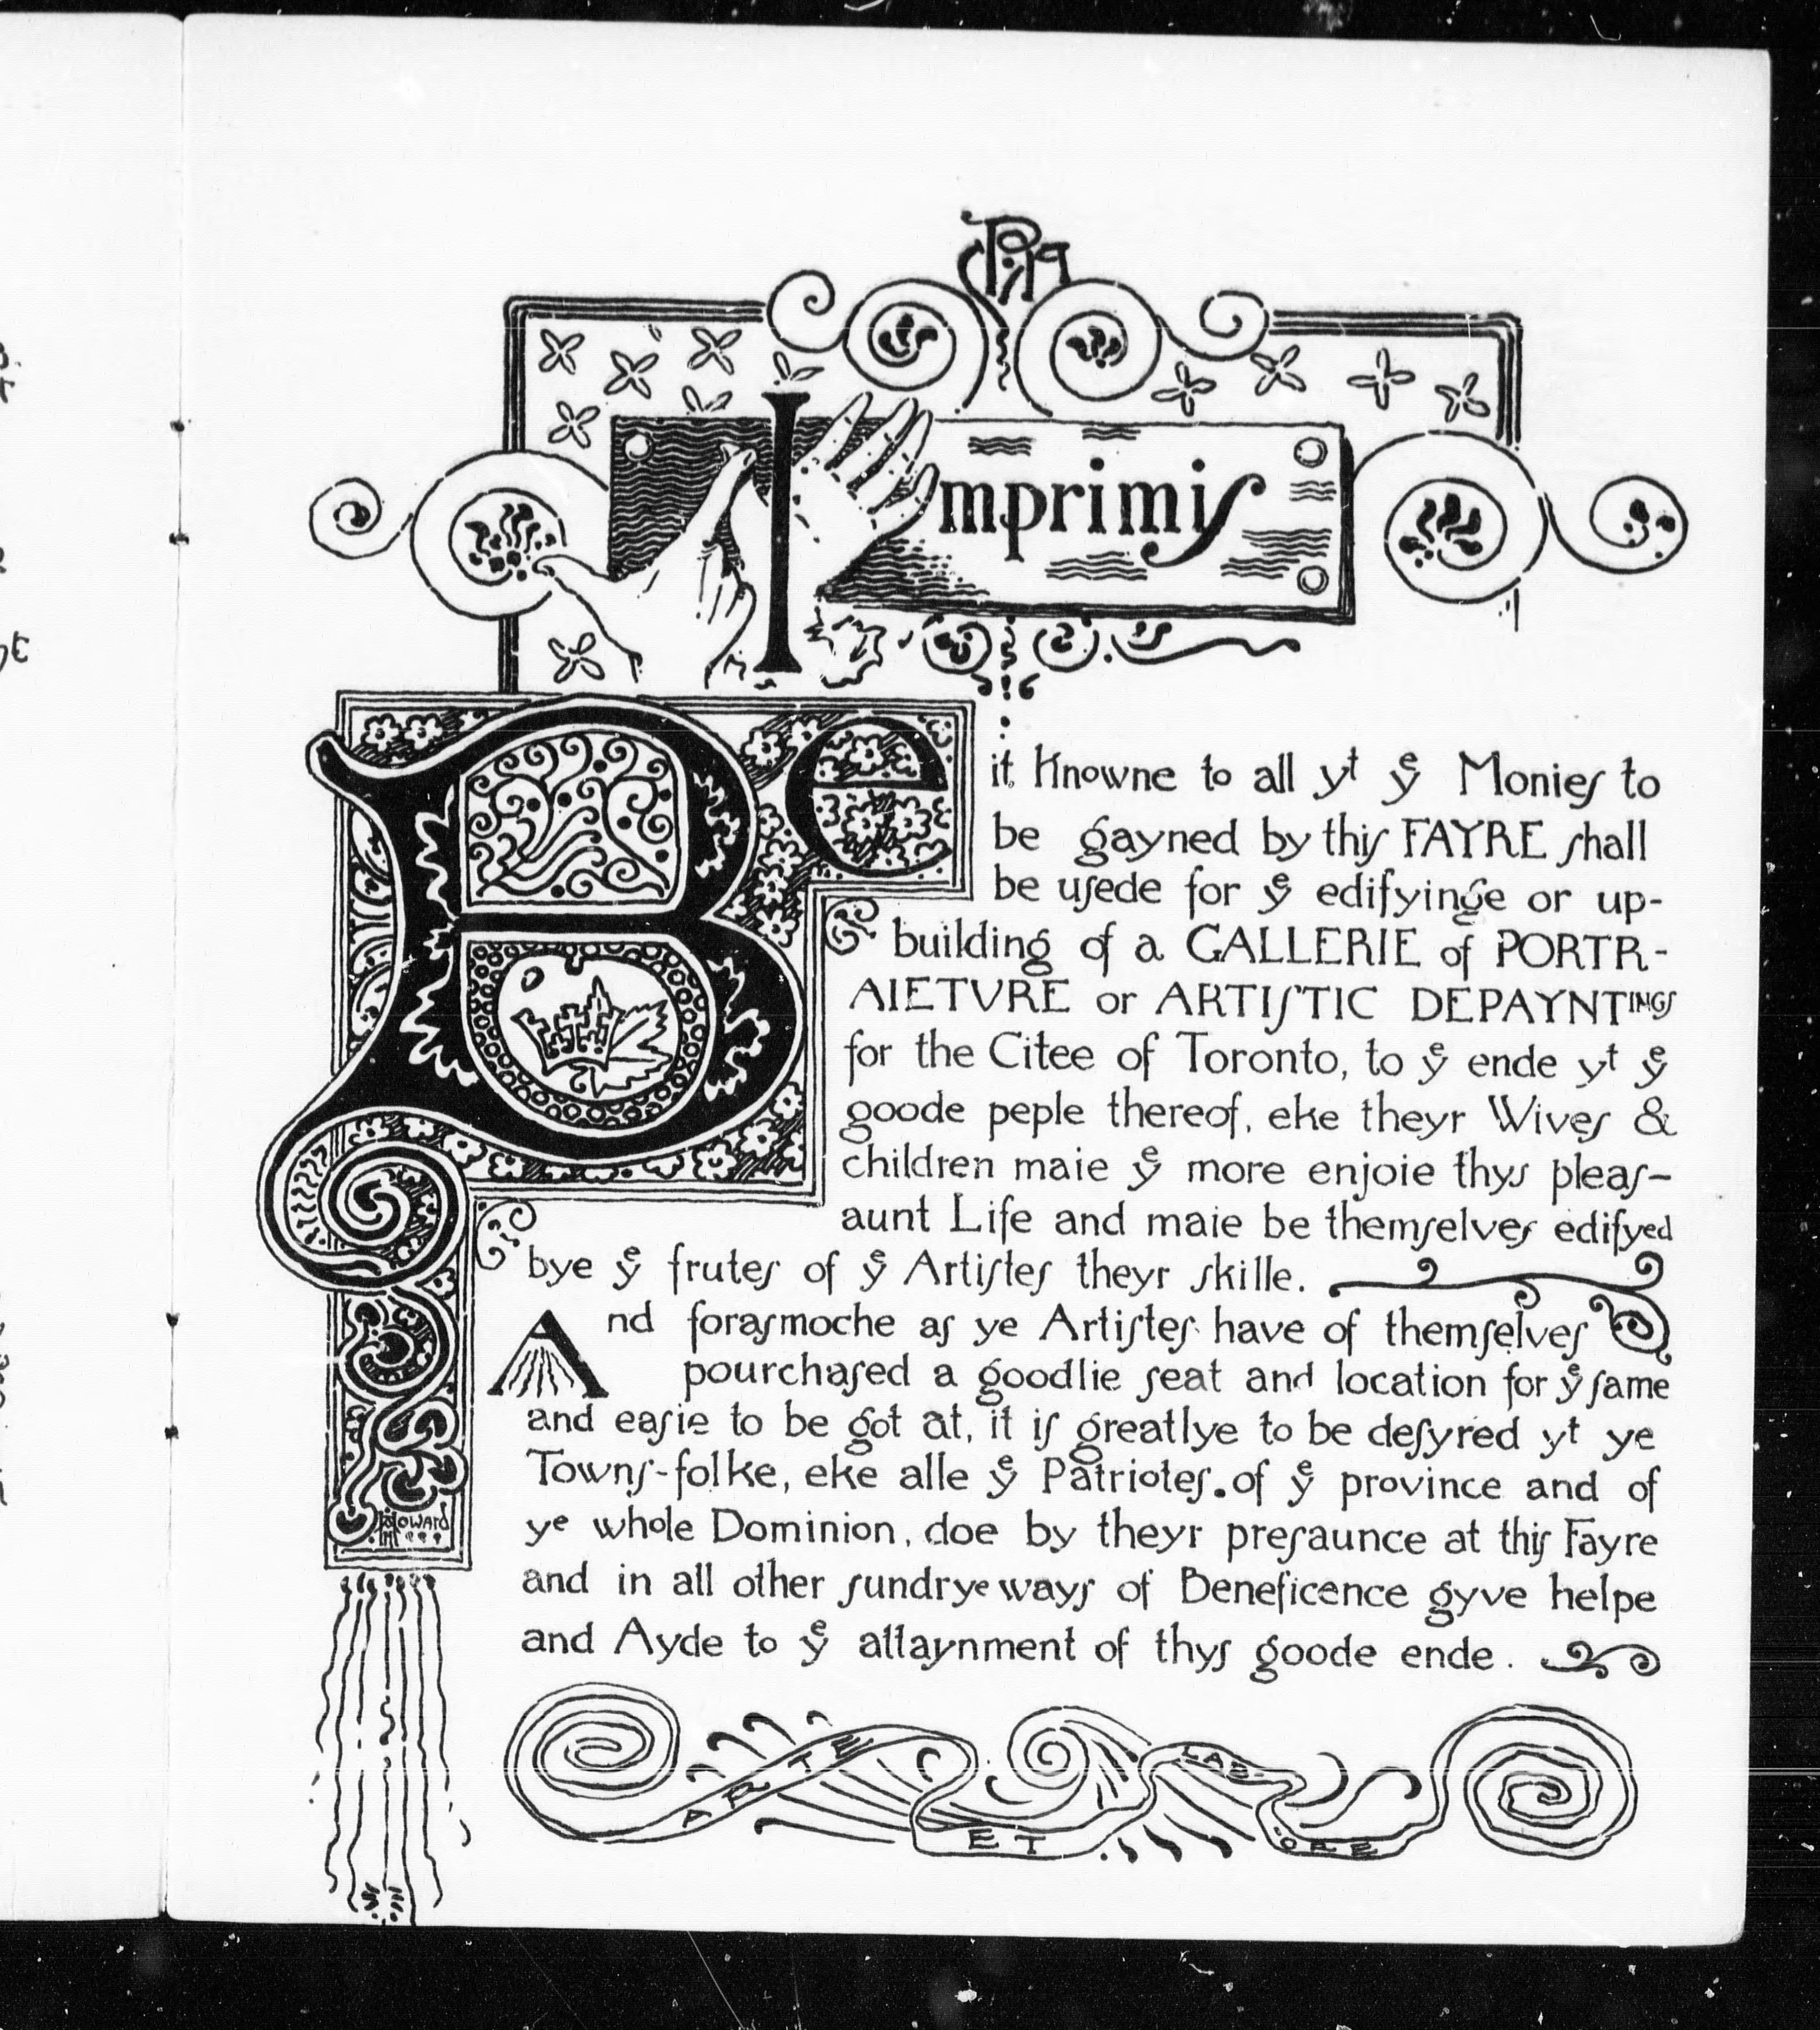 Imprimis
Be it Knowne to all yt yͤ Monies to
be gayned by this FAYRE shall
be usede for yͤ edifyinge or up-
building of a GALLERIE of PORTR-
AIETVRE or ARTISTIC DEPAYNTINGS
for the Citee of Toronto, to yͤ ende yt yͤ
goode peple thereof, eke theyr Wives &
children maie yͤ more enjoie thys pleas-
aunt Life and maie be themselves edifyed
bye yͤ frutes of yͤ Artistes theyr skille.
And forasmoche as ye Artistes have of themselves
pourchased a goodlie seat and location for yͤ same
and easie to be got at, it is greatlye to be desyred yt ye
Towns-folke, eke alle yͤ Patriotes of yͤ province and of
ye whole Dominion, doe by theyr presaunce at this Fayre
and in all other sundrye ways of Beneficence gyve helpe
and Ayde to yͤ attaynment of thys goode ende.
Howard
ARTE ET LAB-ORE